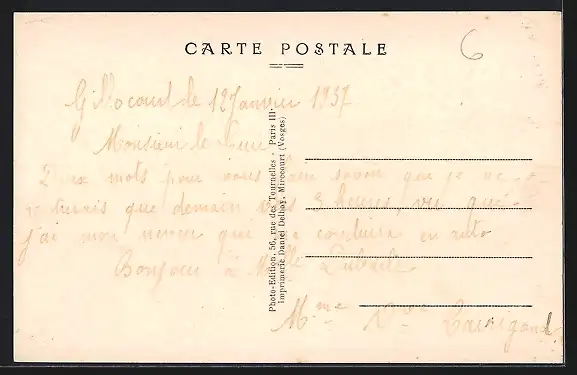 CARTE POSTALE
6
le 12 Janvier 1937
Monsieur le Curé
Deux mots pour vous faire savoir que je ne
que demain vers 3 heures, vu que
j'ai mon neveu qui me conduira en auto
Bonjour à Melle
Mme Vve
Photo-Edition, 56, rue des Tournelles - Paris III
Imprimerie Daniel Delboy, Mirecourt (Vosges)